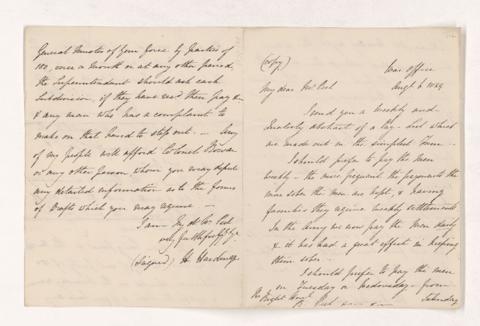 (Copy)
War Office
Augt 6 1829
My dear Mr Peel
I send you a Weekly and
Abstract of a Pay-List which
are made out in the simplest Form.
I should prefer to pay the men
Weekly - the more frequent the payments the
more sober the men are kept, & having
families they require weekly settlements
In the Army we now pay the Men daily
& it has had a great effect in keeping
them sober.
I should prefer to pay the men
on Tuesday or Wednesday - from
Saturday
The Right Honl
R Peel
General Muster of Your Force by Parties of
100, once a Month or at any other period,
the Superintendent should ask each
Subdivision, if they have recd their pay &c
& any man who has a complaint to
make on that head to step out. - Any
of my People will afford Colonel Rowan
or any other Person whom you may depute
any detailed information as to the forms
of Drafts which you may require -
I am - My dr Mr Peel
very
(Signed) H Hardinge